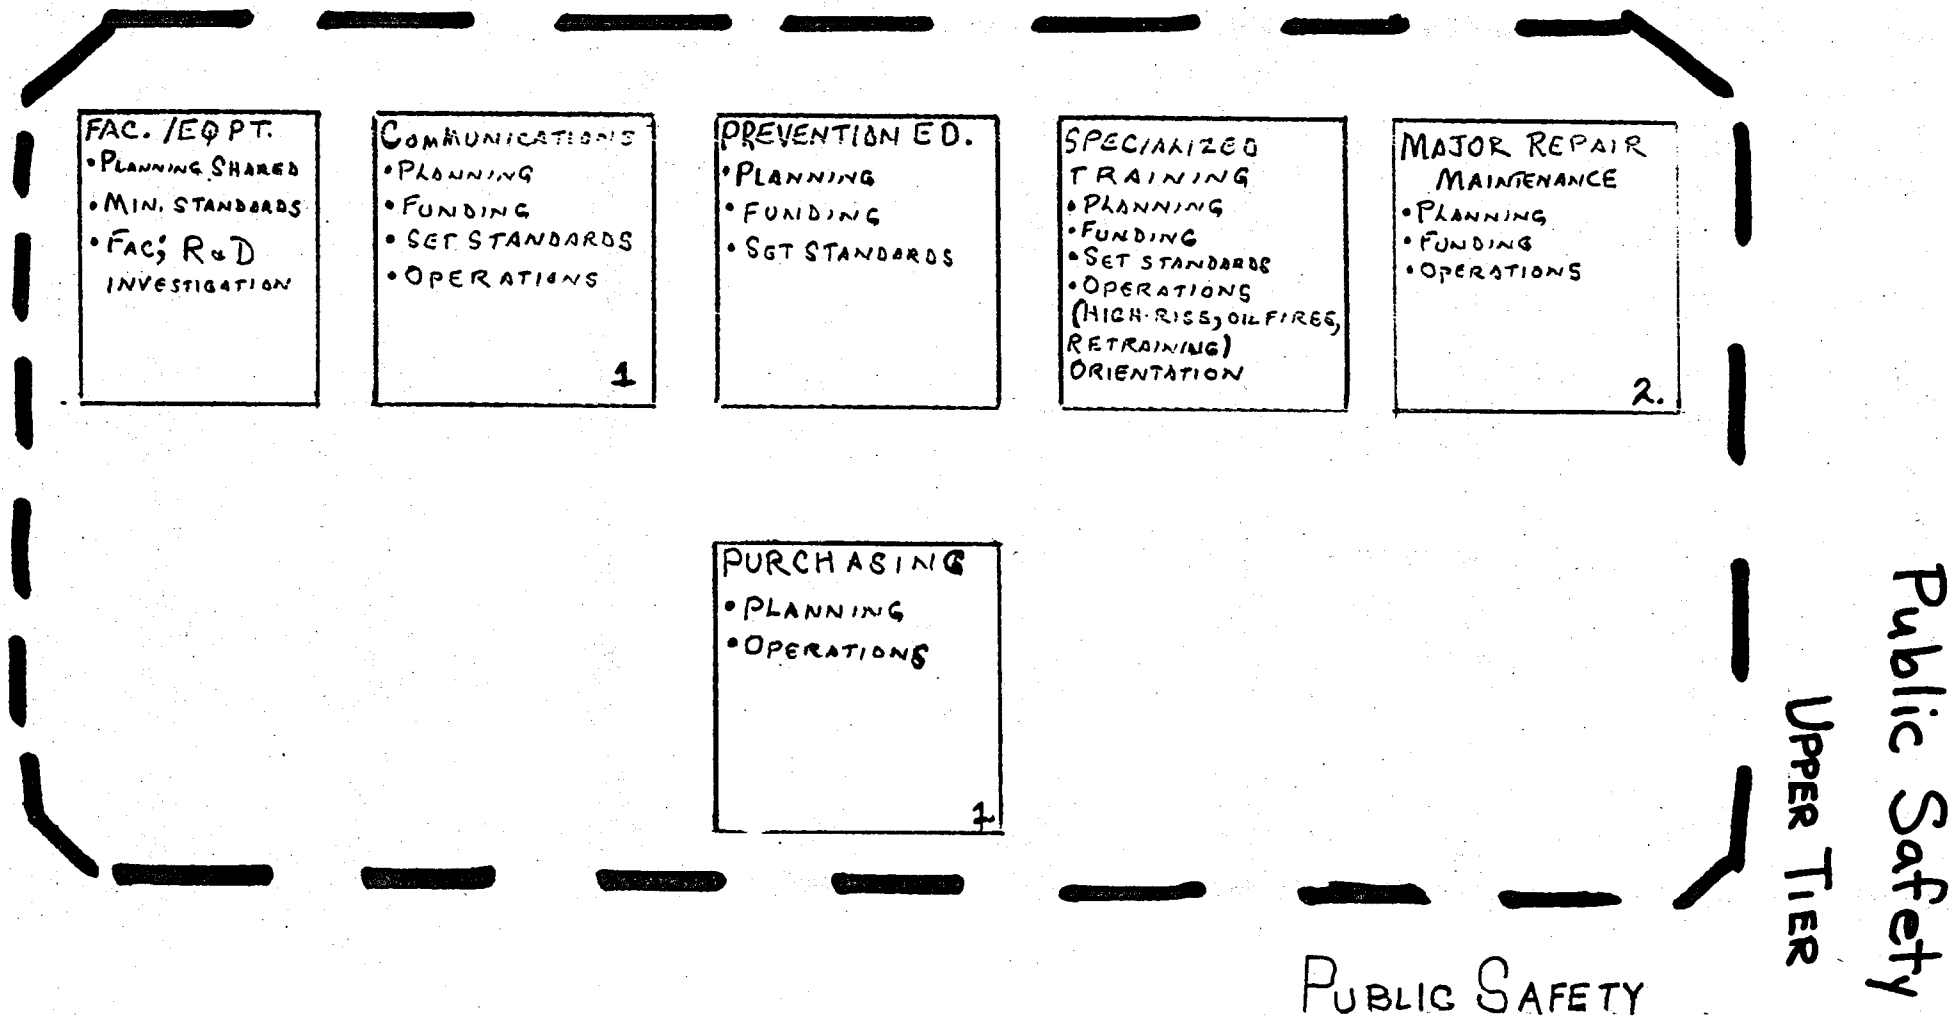 FAC. /EQPT.
• PLANNING SHARED
• MIN. STANDARDS
• FAC; R&D
INVESTIGATION
COMMUNICATIONS
• PLANNING
• FUNDING
• SET STANDARDS
• OPERATIONS
1
PREVENTION ED.
• PLANNING
• FUNDING
• SET STANDARDS
SPECIALIZED
TRAINING
• PLANNING
• FUNDING
• SET STANDARDS
• OPERATIONS
(HIGH-RISE, OIL FIRES,
RETRAINING)
ORIENTATION
MAJOR REPAIR
MAINTENANCE
• PLANNING
• FUNDING
• OPERATIONS
2.
PURCHASING
• PLANNING
• OPERATIONS
1
Public Safety
UPPER TIER
PUBLIC SAFETY